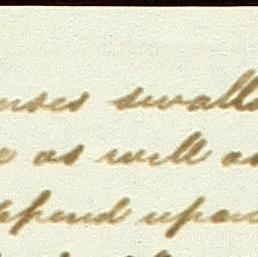 nses swalls
as well as
pend upon